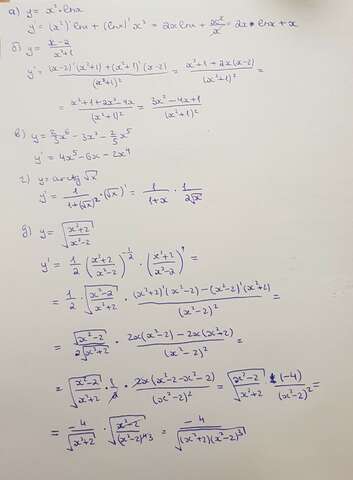 а) y = x²·lnx
y' = (x²)' lnx + (lnx)' x² = 2x lnx + x²/x = 2x · lnx + x
б) y = (x-2)/(x²+1)
y' = ((x-2)'(x²+1) + (x²+1)'(x-2))/(x²+1)² = (x²+1+2x(x-2))/(x²+1)² =
= (x²+1+2x²-4x)/(x²+1)² = (3x²-4x+1)/(x²+1)²
в) y = x⁶ - 3x² - 2/5 x⁵
y' = 4x⁵ - 6x - 2x⁴
г) y = arctg √x
y' = 1/(1+(√x)²) · (√x)' = 1/(1+x) · 1/(2√x)
д) y = √((x²+2)/(x²-2))
y' = 1/2 ((x²+2)/(x²-2))^(-1/2) · ((x²+2)/(x²-2))' =
= 1/2 · √((x²-2)/(x²+2)) · ((x²+2)'(x²-2) - (x²-2)'(x²+2))/(x²-2)² =
= √(x²-2)/(2√(x²+2)) · (2x(x²-2) - 2x(x²+2))/(x²-2)² =
= √((x²-2)/(x²+2)) · 1/2 · 2x(x²-2-x²-2)/(x²-2)² = √((x²-2)/(x²+2)) · (-4)/(x²-2)² =
= -4/√(x²+2) · √((x²-2)/(x²-2)³) = -4/√((x²+2)(x²-2)³)